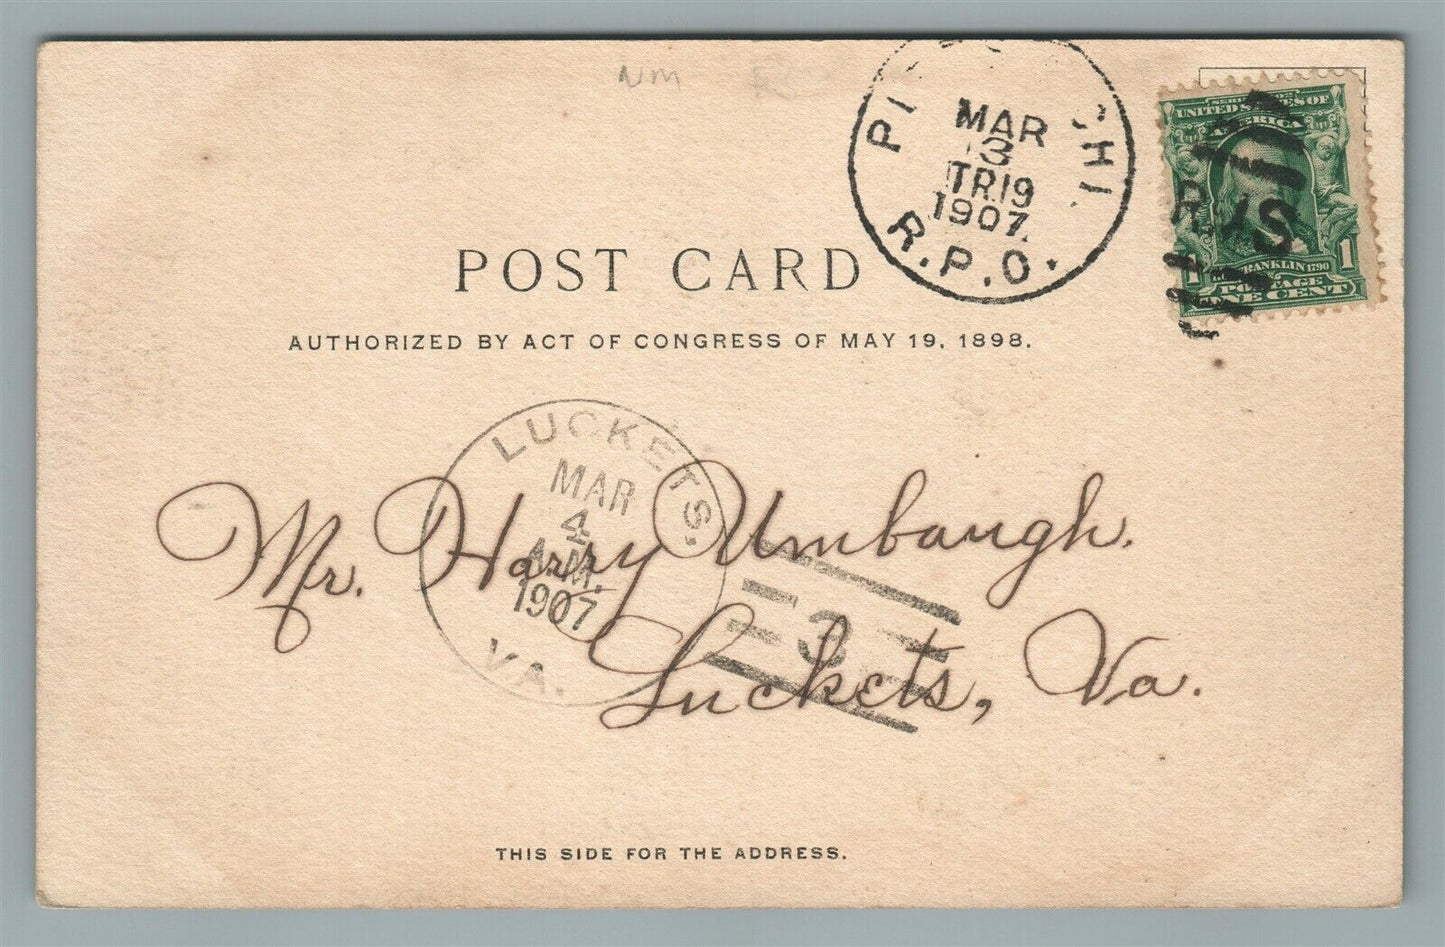 NM
CHI.
MAR
3
TR19
1907.
R.P.O.
SERIES 1902
UNITED STATES OF
AMERICA
R.M.S
FRANKLIN 1790
1 1
POSTAGE
ONE CENT
POST CARD
AUTHORIZED BY ACT OF CONGRESS OF MAY 19, 1898.
LUCKETS,
MAR
4
A.M.
1907
VA.
Mr. Harry Umbaugh.
3
Luckets, Va.
THIS SIDE FOR THE ADDRESS.